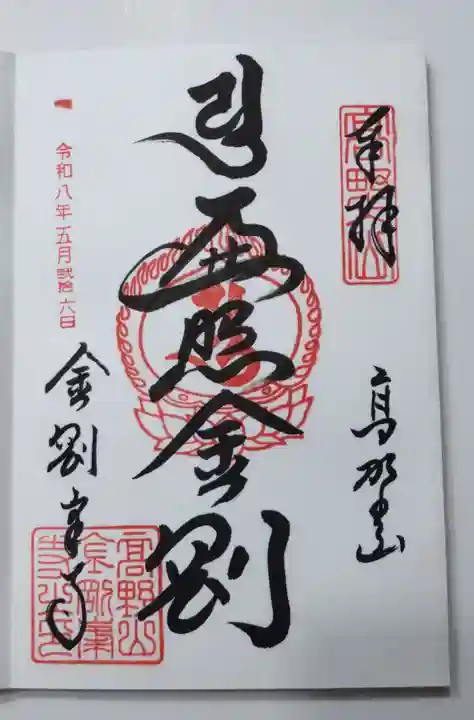 奉拝
高野山
高野山
遍照金剛
令和八年五月弐拾六日
金剛峯寺
高野山
金剛峯
寺